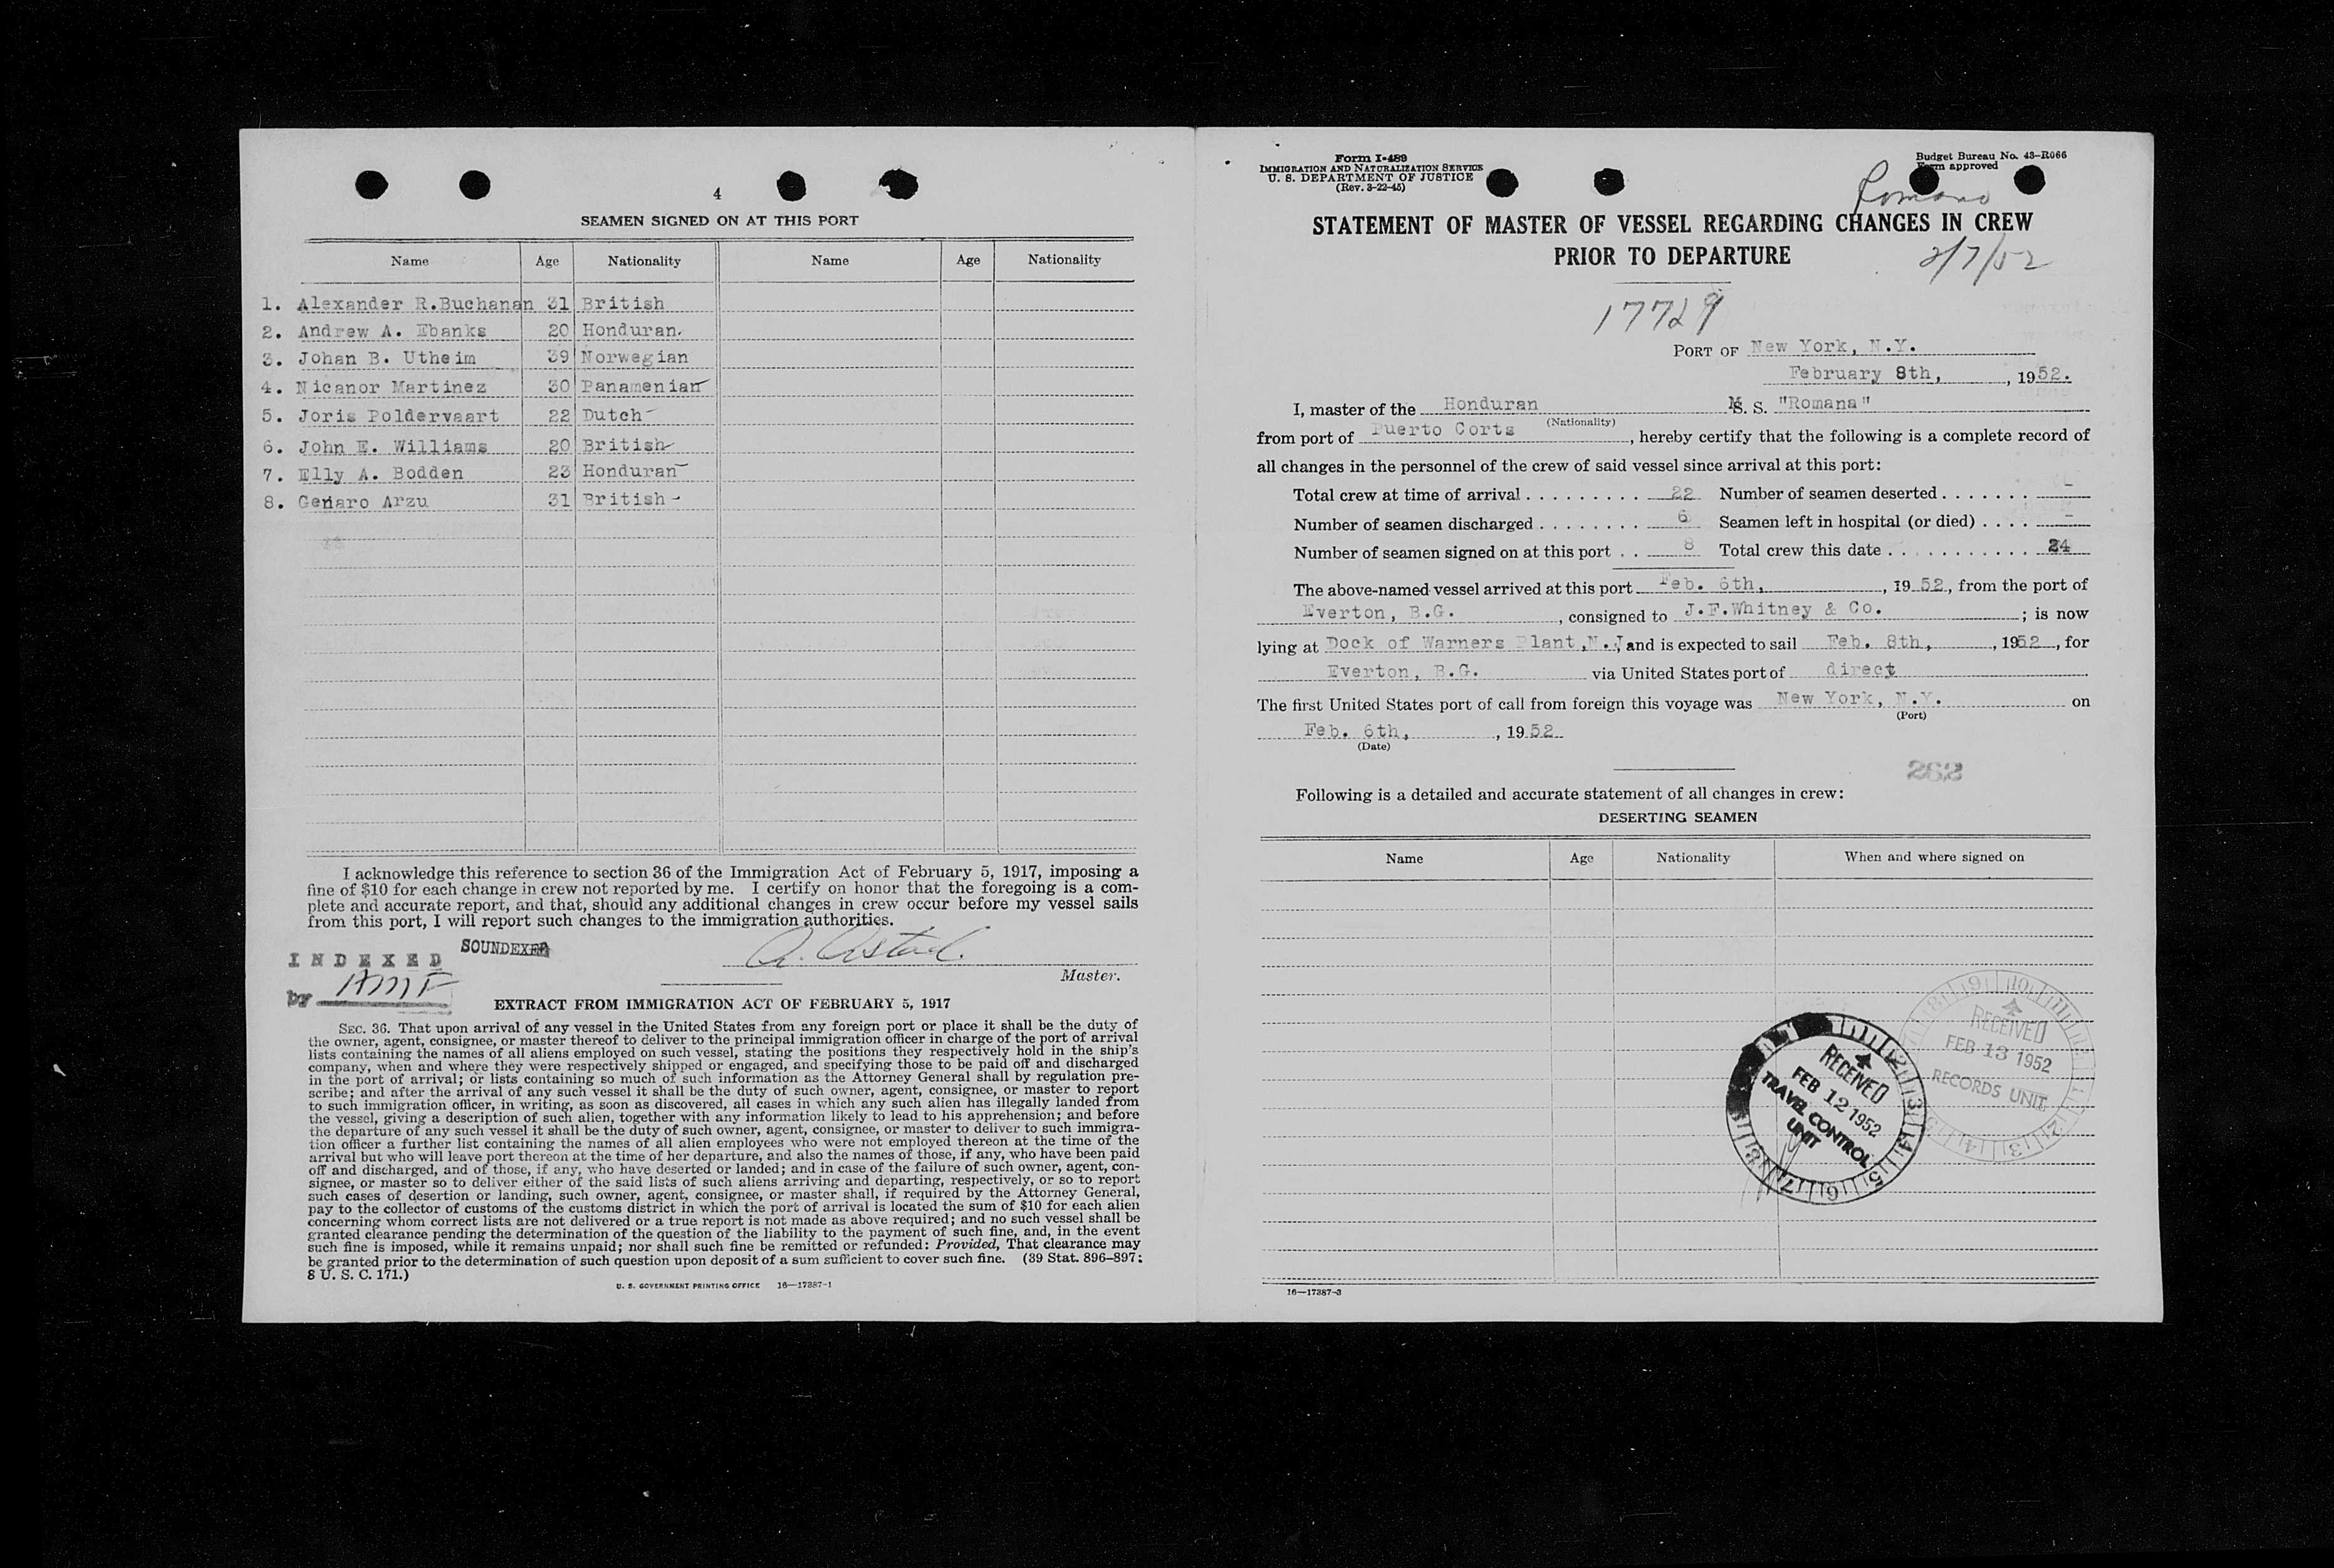 4
SEAMEN SIGNED ON AT THIS PORT
Name Age Nationality Name Age Nationality
1. Alexander R.Buchanan 31 British
2. Andrew A. Ebanks 20 Honduran.
3. Johan B. Utheim 39 Norwegian
4. Nicanor Martinez 30 Panamenian
5. Joris Poldervaart 22 Dutch
6. John E. Williams 20 British
7. Elly A. Bodden 23 Honduran
8. Genaro Arzu 31 British
I acknowledge this reference to section 36 of the Immigration Act of February 5, 1917, imposing a
fine of $10 for each change in crew not reported by me. I certify on honor that the foregoing is a com-
plete and accurate report, and that, should any additional changes in crew occur before my vessel sails
from this port, I will report such changes to the immigration authorities.
SOUNDEXED
INDEXED
by AMF
Master.
EXTRACT FROM IMMIGRATION ACT OF FEBRUARY 5, 1917
SEC. 36. That upon arrival of any vessel in the United States from any foreign port or place it shall be the duty of
the owner, agent, consignee, or master thereof to deliver to the principal immigration officer in charge of the port of arrival
lists containing the names of all aliens employed on such vessel, stating the positions they respectively hold in the ship's
company, when and where they were respectively shipped or engaged, and specifying those to be paid off and discharged
in the port of arrival; or lists containing so much of such information as the Attorney General shall by regulation pre-
scribe; and after the arrival of any such vessel it shall be the duty of such owner, agent, consignee, or master to report
to such immigration officer, in writing, as soon as discovered, all cases in which any such alien has illegally landed from
the vessel, giving a description of such alien, together with any information likely to lead to his apprehension; and before
the departure of any such vessel it shall be the duty of such owner, agent, consignee, or master to deliver to such immigra-
tion officer a further list containing the names of all alien employees who were not employed thereon at the time of the
arrival but who will leave port thereon at the time of her departure, and also the names of those, if any, who have been paid
off and discharged, and of those, if any, who have deserted or landed; and in case of the failure of such owner, agent, con-
signee, or master so to deliver either of the said lists of such aliens arriving and departing, respectively, or so to report
such cases of desertion or landing, such owner, agent, consignee, or master shall, if required by the Attorney General,
pay to the collector of customs of the customs district in which the port of arrival is located the sum of $10 for each alien
concerning whom correct lists are not delivered or a true report is not made as above required; and no such vessel shall be
granted clearance pending the determination of the question of the liability to the payment of such fine, and, in the event
such fine is imposed, while it remains unpaid; nor shall such fine be remitted or refunded: Provided, That clearance may
be granted prior to the determination of such question upon deposit of a sum sufficient to cover such fine. (39 Stat. 896-897;
8 U. S. C. 171.)
U. S. GOVERNMENT PRINTING OFFICE 16—17387-1
Form I-489
IMMIGRATION AND NATURALIZATION SERVICE
U. S. DEPARTMENT OF JUSTICE
(Rev. 3-22-45)
Budget Bureau No. 43-R066
Form approved
Romana
STATEMENT OF MASTER OF VESSEL REGARDING CHANGES IN CREW
PRIOR TO DEPARTURE
2/7/52
17729
PORT OF New York, N.Y.
February 8th, , 1952.
I, master of the Honduran M. S. "Romana"
(Nationality)
from port of Puerto Corts , hereby certify that the following is a complete record of
all changes in the personnel of the crew of said vessel since arrival at this port:
Total crew at time of arrival 22 Number of seamen deserted -
Number of seamen discharged 6 Seamen left in hospital (or died) -
Number of seamen signed on at this port 8 Total crew this date 24
The above-named vessel arrived at this port Feb. 6th, , 1952, from the port of
Everton, B.G. , consigned to J.F.Whitney & Co. ; is now
lying at Dock of Warners Plant,N.J, and is expected to sail Feb. 8th, , 1952, for
Everton, B.G. via United States port of direct
The first United States port of call from foreign this voyage was New York, N.Y. on
(Port)
Feb. 6th, , 1952
(Date)
262
Following is a detailed and accurate statement of all changes in crew:
DESERTING SEAMEN
Name Age Nationality When and where signed on
RECEIVED
FEB 13 1952
RECORDS UNIT
RECEIVED
FEB 12 1952
TRAVEL CONTROL
UNIT
16—17387-3